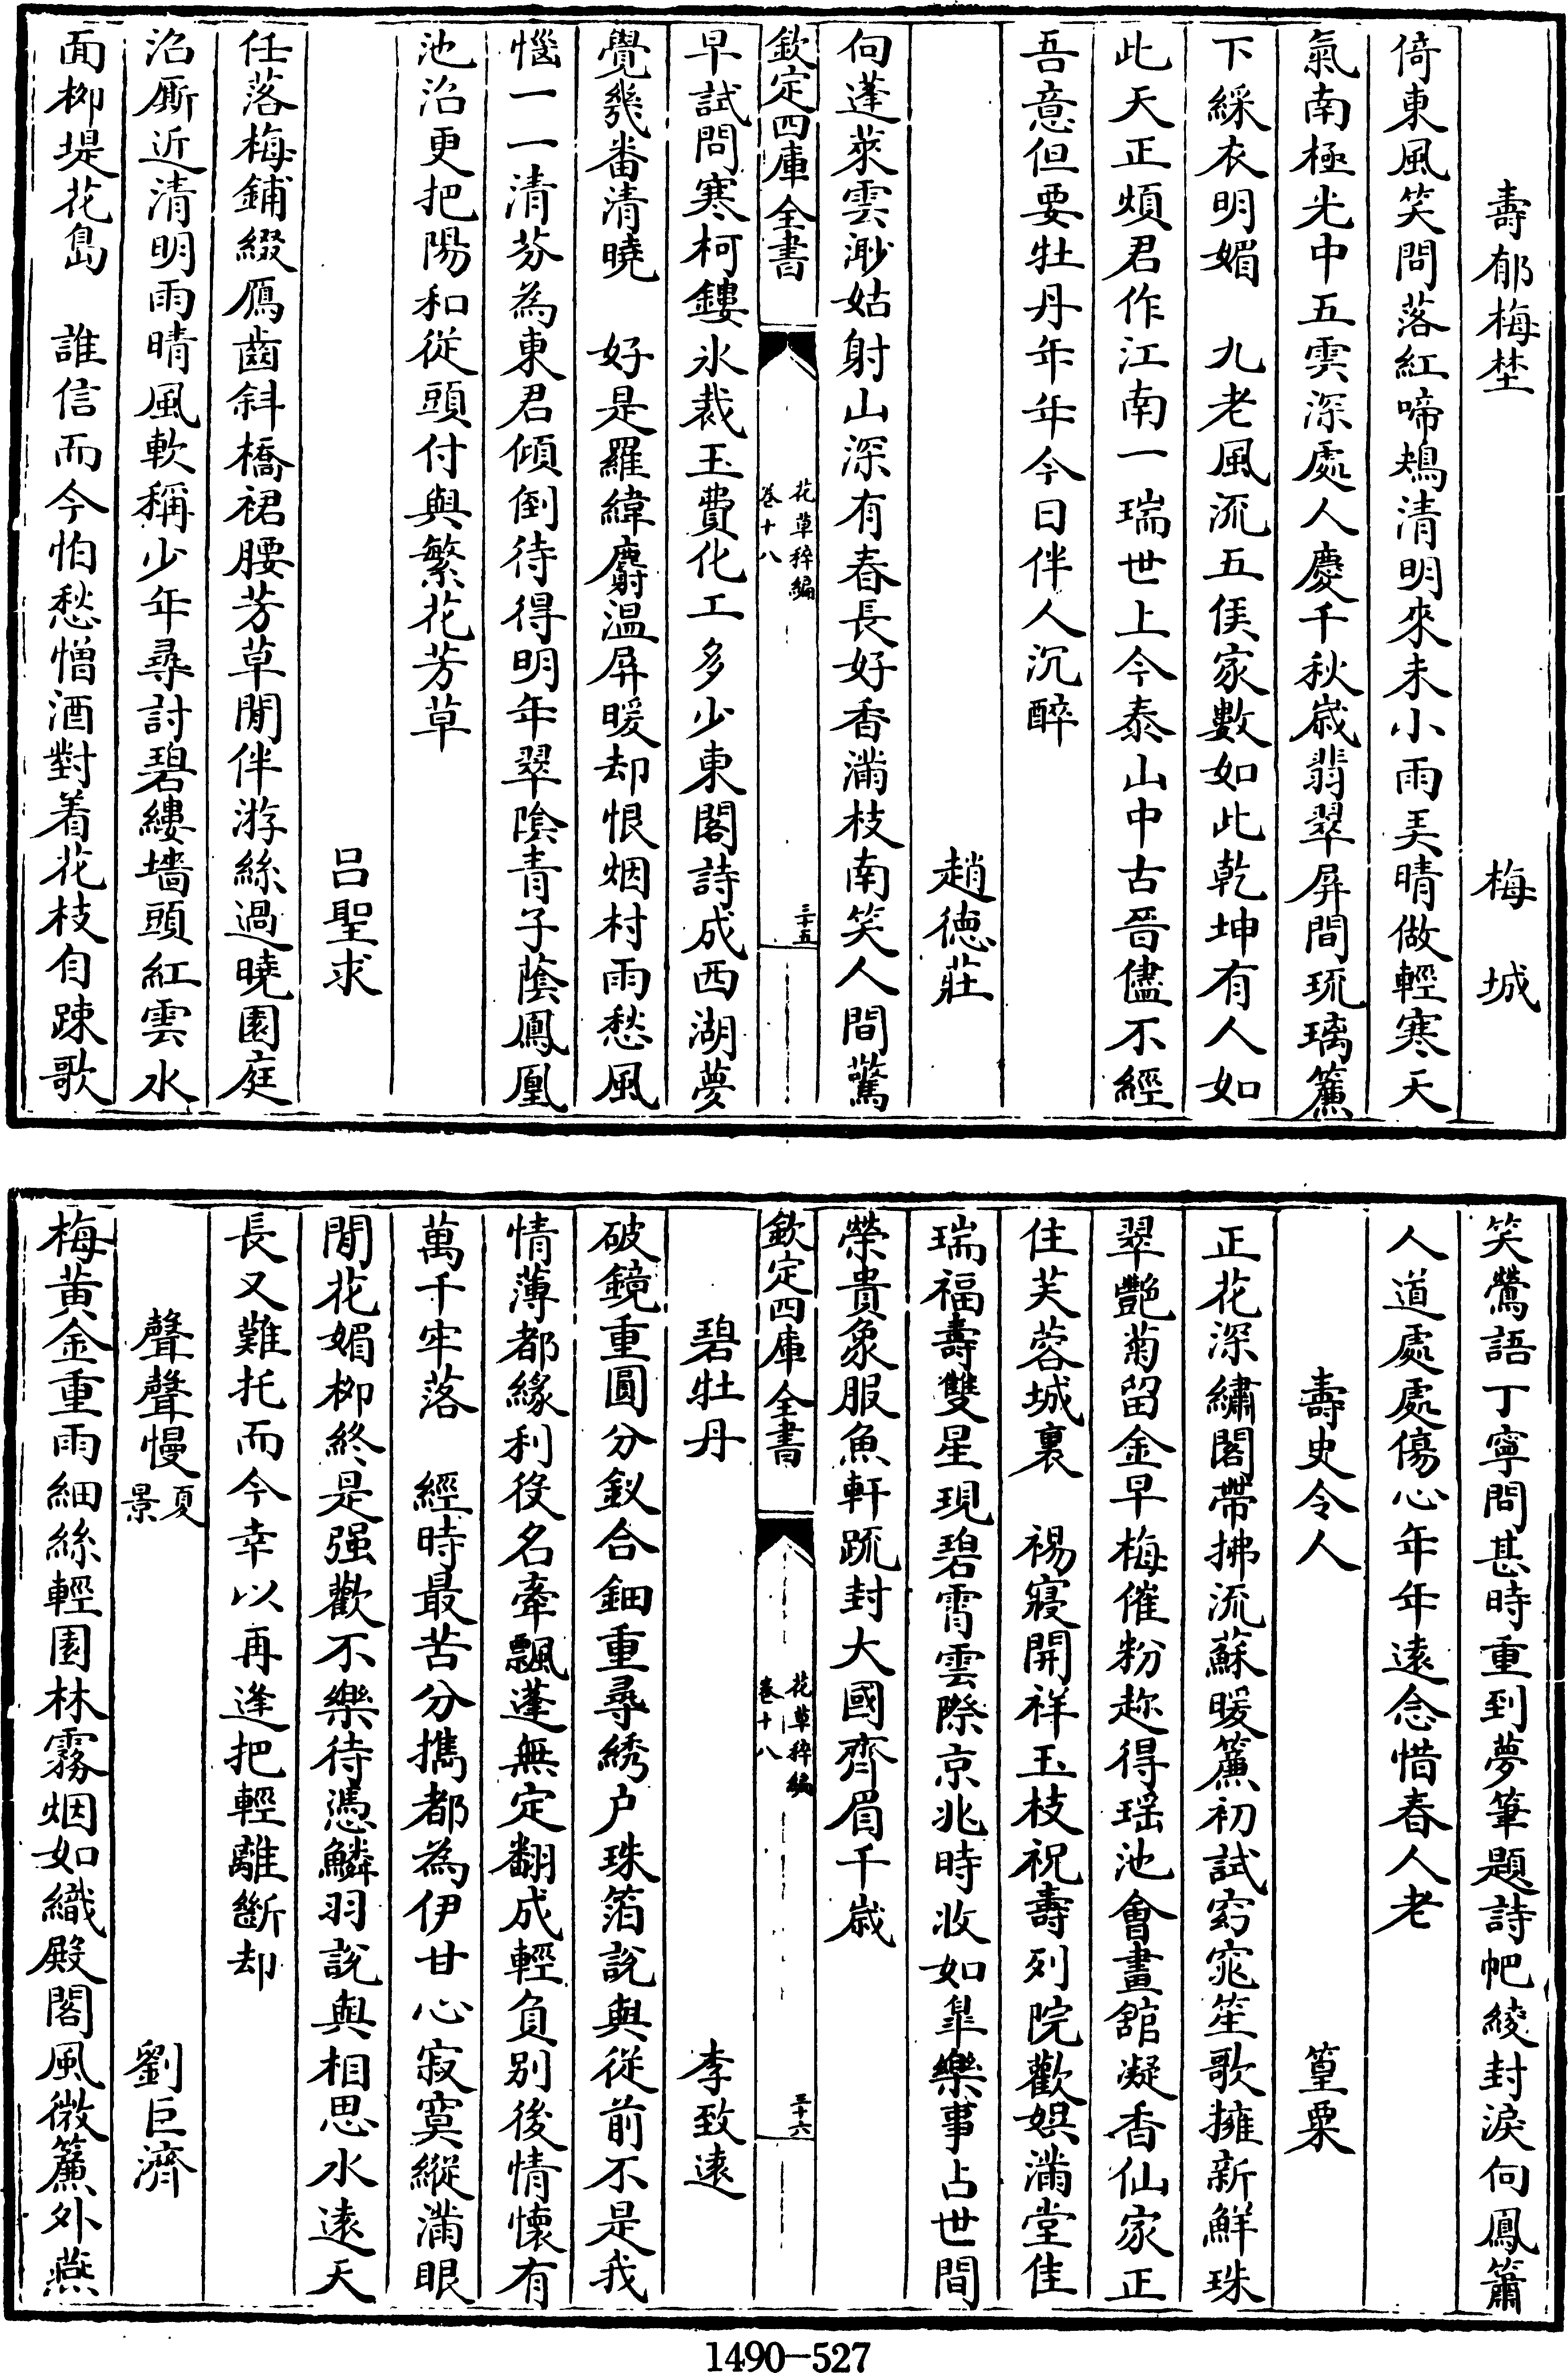 壽郁梅埜　梅城
倚東風笑問落紅啼鴂清明來未小雨弄晴做輕寒天
氣南極光中五雲深處人慶千秋歲翡翠屏間琉璃簾
下綵衣明媚　九老風流五侯家數如此乾坤有人如
此天正煩君作江南一瑞世上今泰山中古晉儘不經
吾意但要牡丹年年今日伴人沉醉
趙德莊
向蓬萊雲渺姑射山深有春長好香滿枝南笑人間驚
欽定四庫全書　花草稡編　卷十八　三十五
早試問寒柯鏤氷裁玉費化工多少東閣詩成西湖夢
覺幾番清曉　好是羅緯麝温屏暖却恨烟村雨愁風
惱一一清芬為東君傾倒待得明年翠陰青子蔭鳳凰
池沼更把陽和從頭付與繁花芳草
呂聖求
任落梅鋪綴鴈齒斜橋裙腰芳草閒伴游絲過曉園庭
沼厮近清明雨晴風軟稱少年尋討碧縷墻頭紅雲水
面栁堤花島　誰信而今怕愁憎酒對着花枝自踈歌
笑鶯語丁寧問甚時重到夢筆題詩帊綾封淚向鳳簫
人道處處傷心年年遠念惜春人老
壽史令人　篁粟
正花深繡閣帶拂流蘇暖簾初試窈窕笙歌擁新鮮珠
翠艷菊留金早梅催粉趂得瑤池會畫舘凝香仙家正
住芙蓉城裏　裼寢開祥玉枝祝壽列院歡娛滿堂佳
瑞福壽雙星現碧霄雲際京兆時收如皐樂事占世間
榮貴象服魚軒䟽封大國齊眉千歲
欽定四庫全書　花草稡編　卷十八　三十六
碧牡丹　李致遠
破鏡重圓分釵合鈿重尋綉户珠箔說與從前不是我
情薄都緣利役名牽飄蓬無定翻成輕負别後情懷有
萬千牢落　經時最苦分攜都為伊甘心寂寞縱滿眼
閒花媚栁終是强歡不樂待憑鱗羽說與相思水遠天
長又難托而今幸以再逢把輕離斷却
聲聲慢夏景　劉巨濟
梅黄金重雨細絲輕園林霧烟如織殿閣風微簾外燕
1490-527